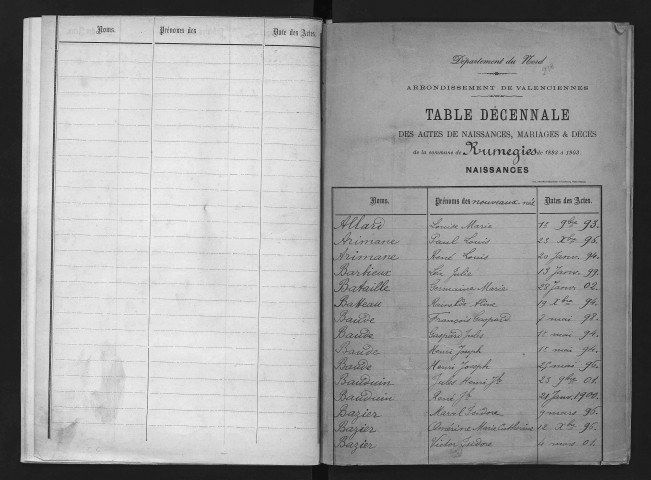 Noms. Prénoms des Date des Actes.
Département du Nord
ARRONDISSEMENT DE VALENCIENNES
TABLE DÉCENNALE
DES ACTES DE NAISSANCES, MARIAGES & DÉCÈS
de la commune de Rumegies de 1893 à 1903.
NAISSANCES
Noms. Prénoms des nouveaux nés Dates des Actes.
Allard Louise Marie 18 9bre 93.
Arimane Paul Louis 23 Xbre 96.
Arimane René Louis 20 Janv. 94.
Barbieux Julie 13 Janv. 99.
Bataille Germaine Marie 28 Janv 02.
Batteau 19 Xbre 94.
Baude François Gaspard 8 mai 98.
Baude Gaspard Jules 1er mai 94.
Baude Henri Joseph 1er mai 94.
Baude Henri Joseph 27 mai 96.
Bauduin Jules Henri Jh 23 9bre 01.
Bauduin René Jh 28 Janv. 1900.
Bazier Marcel Isidore 9 mars 96.
Bazier Marie Catherine 12 Xbre 96.
Bazier Victor Isidore 4 mars 01.